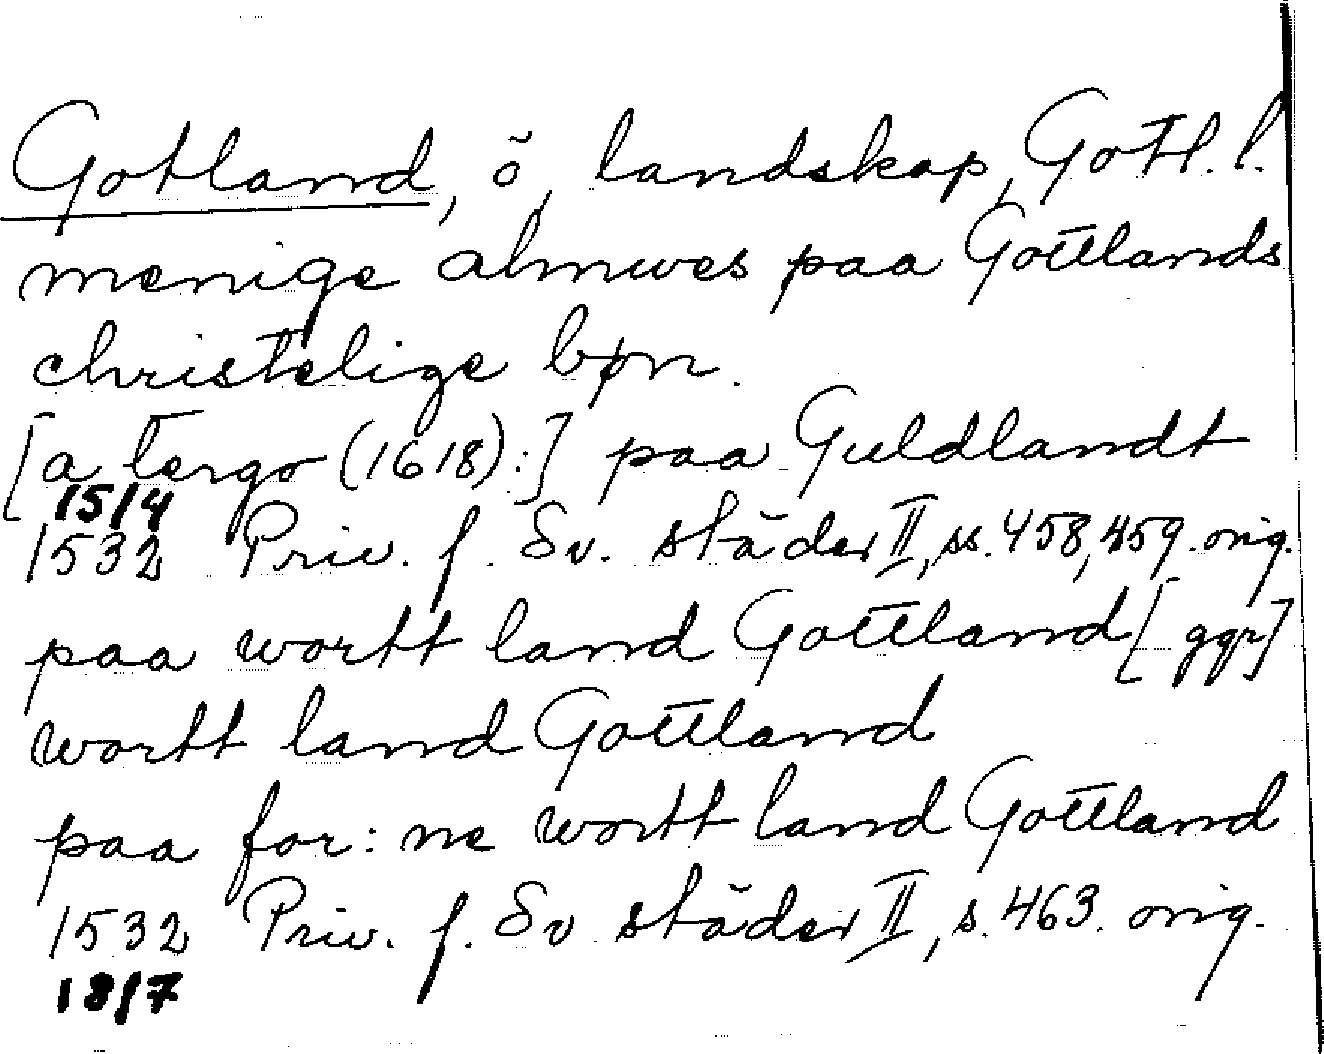 Gotland, ö, landskap, Gotl. l.
menige almwes paa Gottlands
christelige bøn.
[a tergo (1618):] paa Guldlandt
15/4
1532 Priv. f. Sv. städer II, ss. 458, 459. orig.
paa wortt land Gottland [ggr]
wortt land Gottland
paa for: ne wortt land Gottland
1532 Priv. f. Sv städer II, s. 463. orig.
18/7